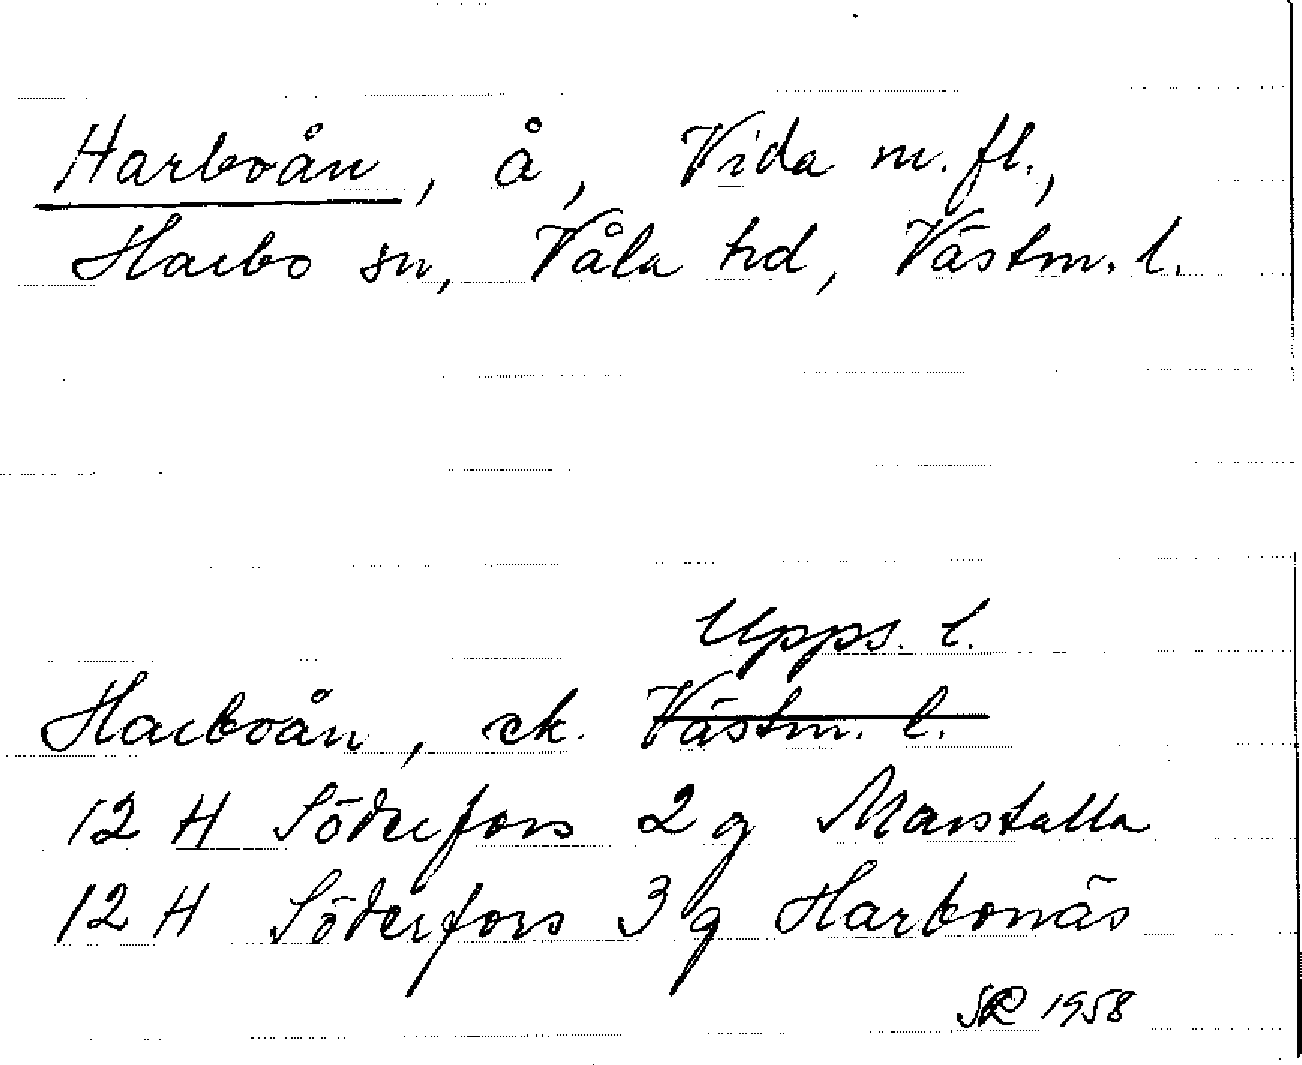 Harboån, å, Vida m. fl.,
Harbo sn, Våla hd, Västm. l.
Upps. l.
Harboån, ek. Västm. l.
12 H Söderfors 2 g Marstalla
12 H Söderfors 3 g Harbonäs
SR 1958